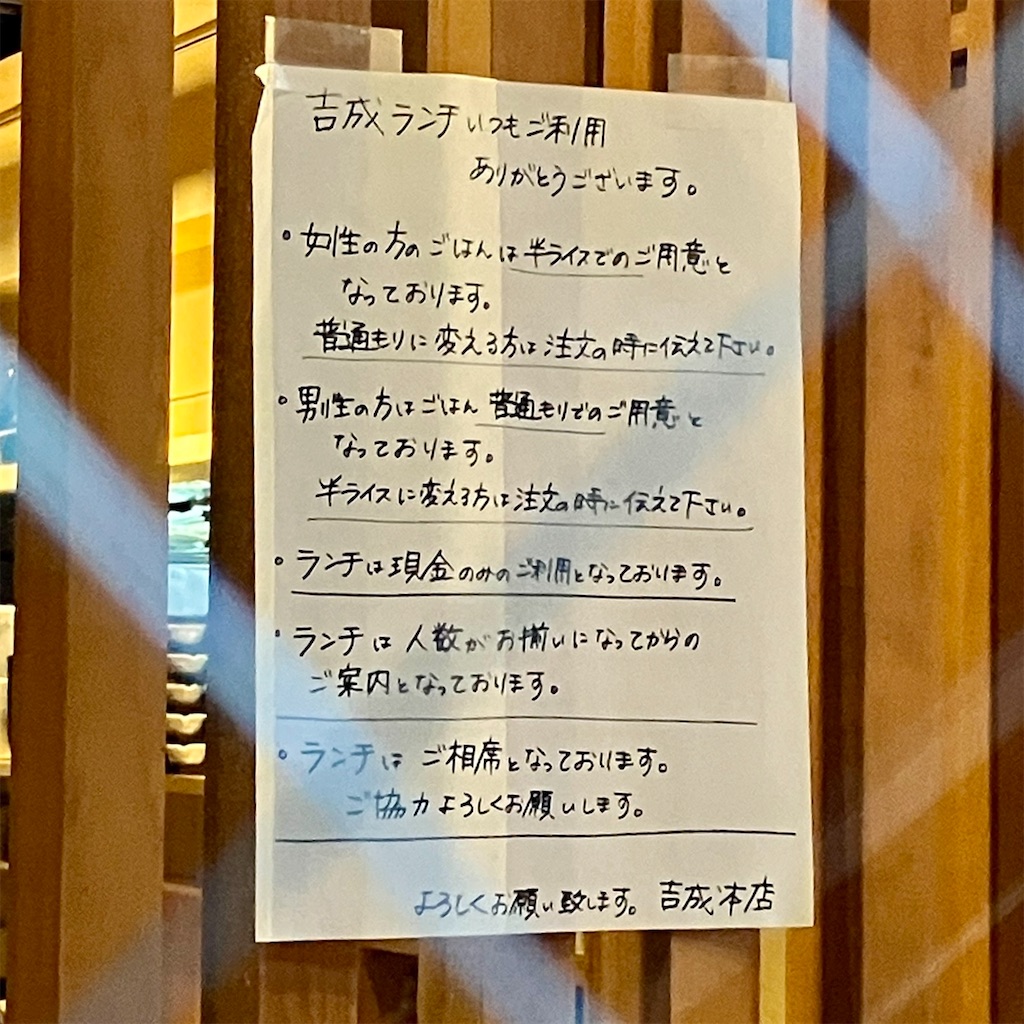 吉成ランチいつもご利用
ありがとうございます。
・女性の方のごはんは半ライスでのご用意と
なっております。
普通もりに変える方は注文の時に伝えて下さい。
・男性の方はごはん普通もりでのご用意と
なっております。
半ライスに変える方は注文の時に伝えて下さい。
・ランチは現金のみのご利用となっております。
・ランチは人数がお揃いになってからの
ご案内となっております。
・ランチはご相席となっております。
ご協力よろしくお願いします。
よろしくお願い致します。吉成本店